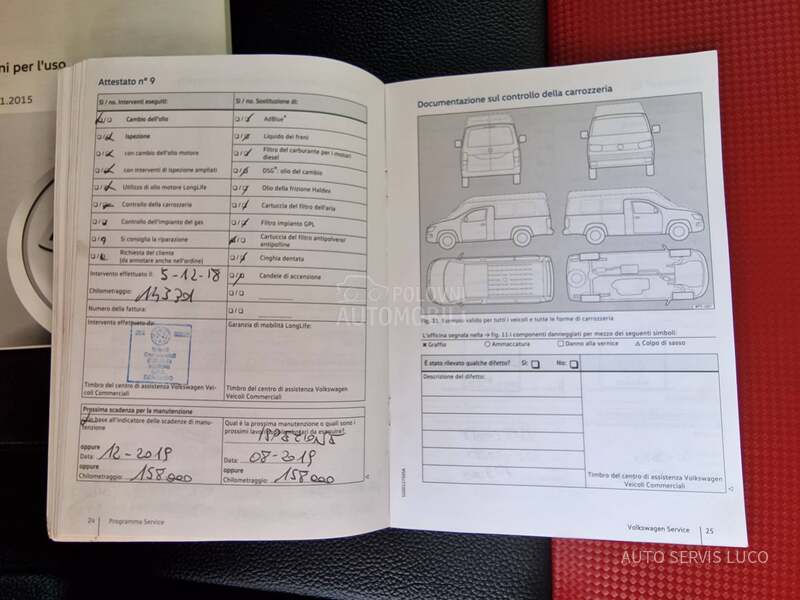 ni per l'uso
1.2015
Attestato n° 9
Sì / no. Interventi eseguiti:
Cambio dell'olio
Ispezione
con cambio dell'olio motore
con interventi di ispezione ampliati
Utilizzo di olio motore LongLife
Controllo della carrozzeria
Controllo dell'impianto del gas
Si consiglia la riparazione
Richiesta del cliente
(da annotare anche nell'ordine)
Intervento effettuato il: 5-12-18
Chilometraggio: 143791
Numero della fattura:
Intervento effettuato da:
Timbro del centro di assistenza Volkswagen Vei-
coli Commerciali
Sì / no. Sostituzione di:
AdBlue®
Liquido dei freni
Filtro del carburante per i motori
diesel
DSG®: olio del cambio
Olio della frizione Haldex
Cartuccia del filtro dell'aria
Filtro impianto GPL
Cartuccia del filtro antipolvere/
antipolline
Cinghia dentata
Candele di accensione
Garanzia di mobilità LongLife:
Timbro del centro di assistenza Volkswagen
Veicoli Commerciali
Prossima scadenza per la manutenzione
base all'indicatore delle scadenze di manu-
tenzione
oppure
Data: 12-2019
oppure
Chilometraggio: 158000
Qual è la prossima manutenzione o quali sono i
prossimi da eseguire?
ISPEZIONE
oppure
Data: 08-2019
oppure
Chilometraggio: 158000
24 Programma Service
Documentazione sul controllo della carrozzeria
Fig. 11 Esempio valido per tutti i veicoli e tutte le forme di carrozzeria
L'officina segnala nella → fig. 11 i componenti danneggiati per mezzo dei seguenti simboli:
✖ Graffio ○ Ammaccatura □ Danno alla vernice △ Colpo di sasso
È stato rilevato qualche difetto? Sì: □ No: □
Descrizione del difetto:
Timbro del centro di assistenza Volkswagen
Veicoli Commerciali
Volkswagen Service 25
POLOVNI
AUTOMOBILI
AUTO SERVIS LUCO